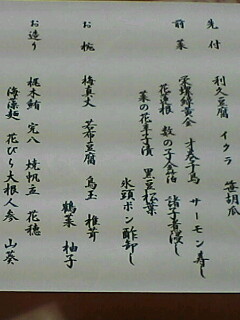 先付
利久豆腐 イクラ 笹胡瓜
前菜
栄螺緑黄金 才巻千鳥 サーモン寿し
花蓮根 数の子合治 諸子香漬し
菜の花辛子漬 黒豆松葉
氷頭ポン酢卸し
お椀
梅真丈 若布豆腐 鳥玉 椎茸
鶴菜 柚子
お造り
梶木鮪 完八 焼帆立 花穂
海藻麺 花びら大根人参 山葵